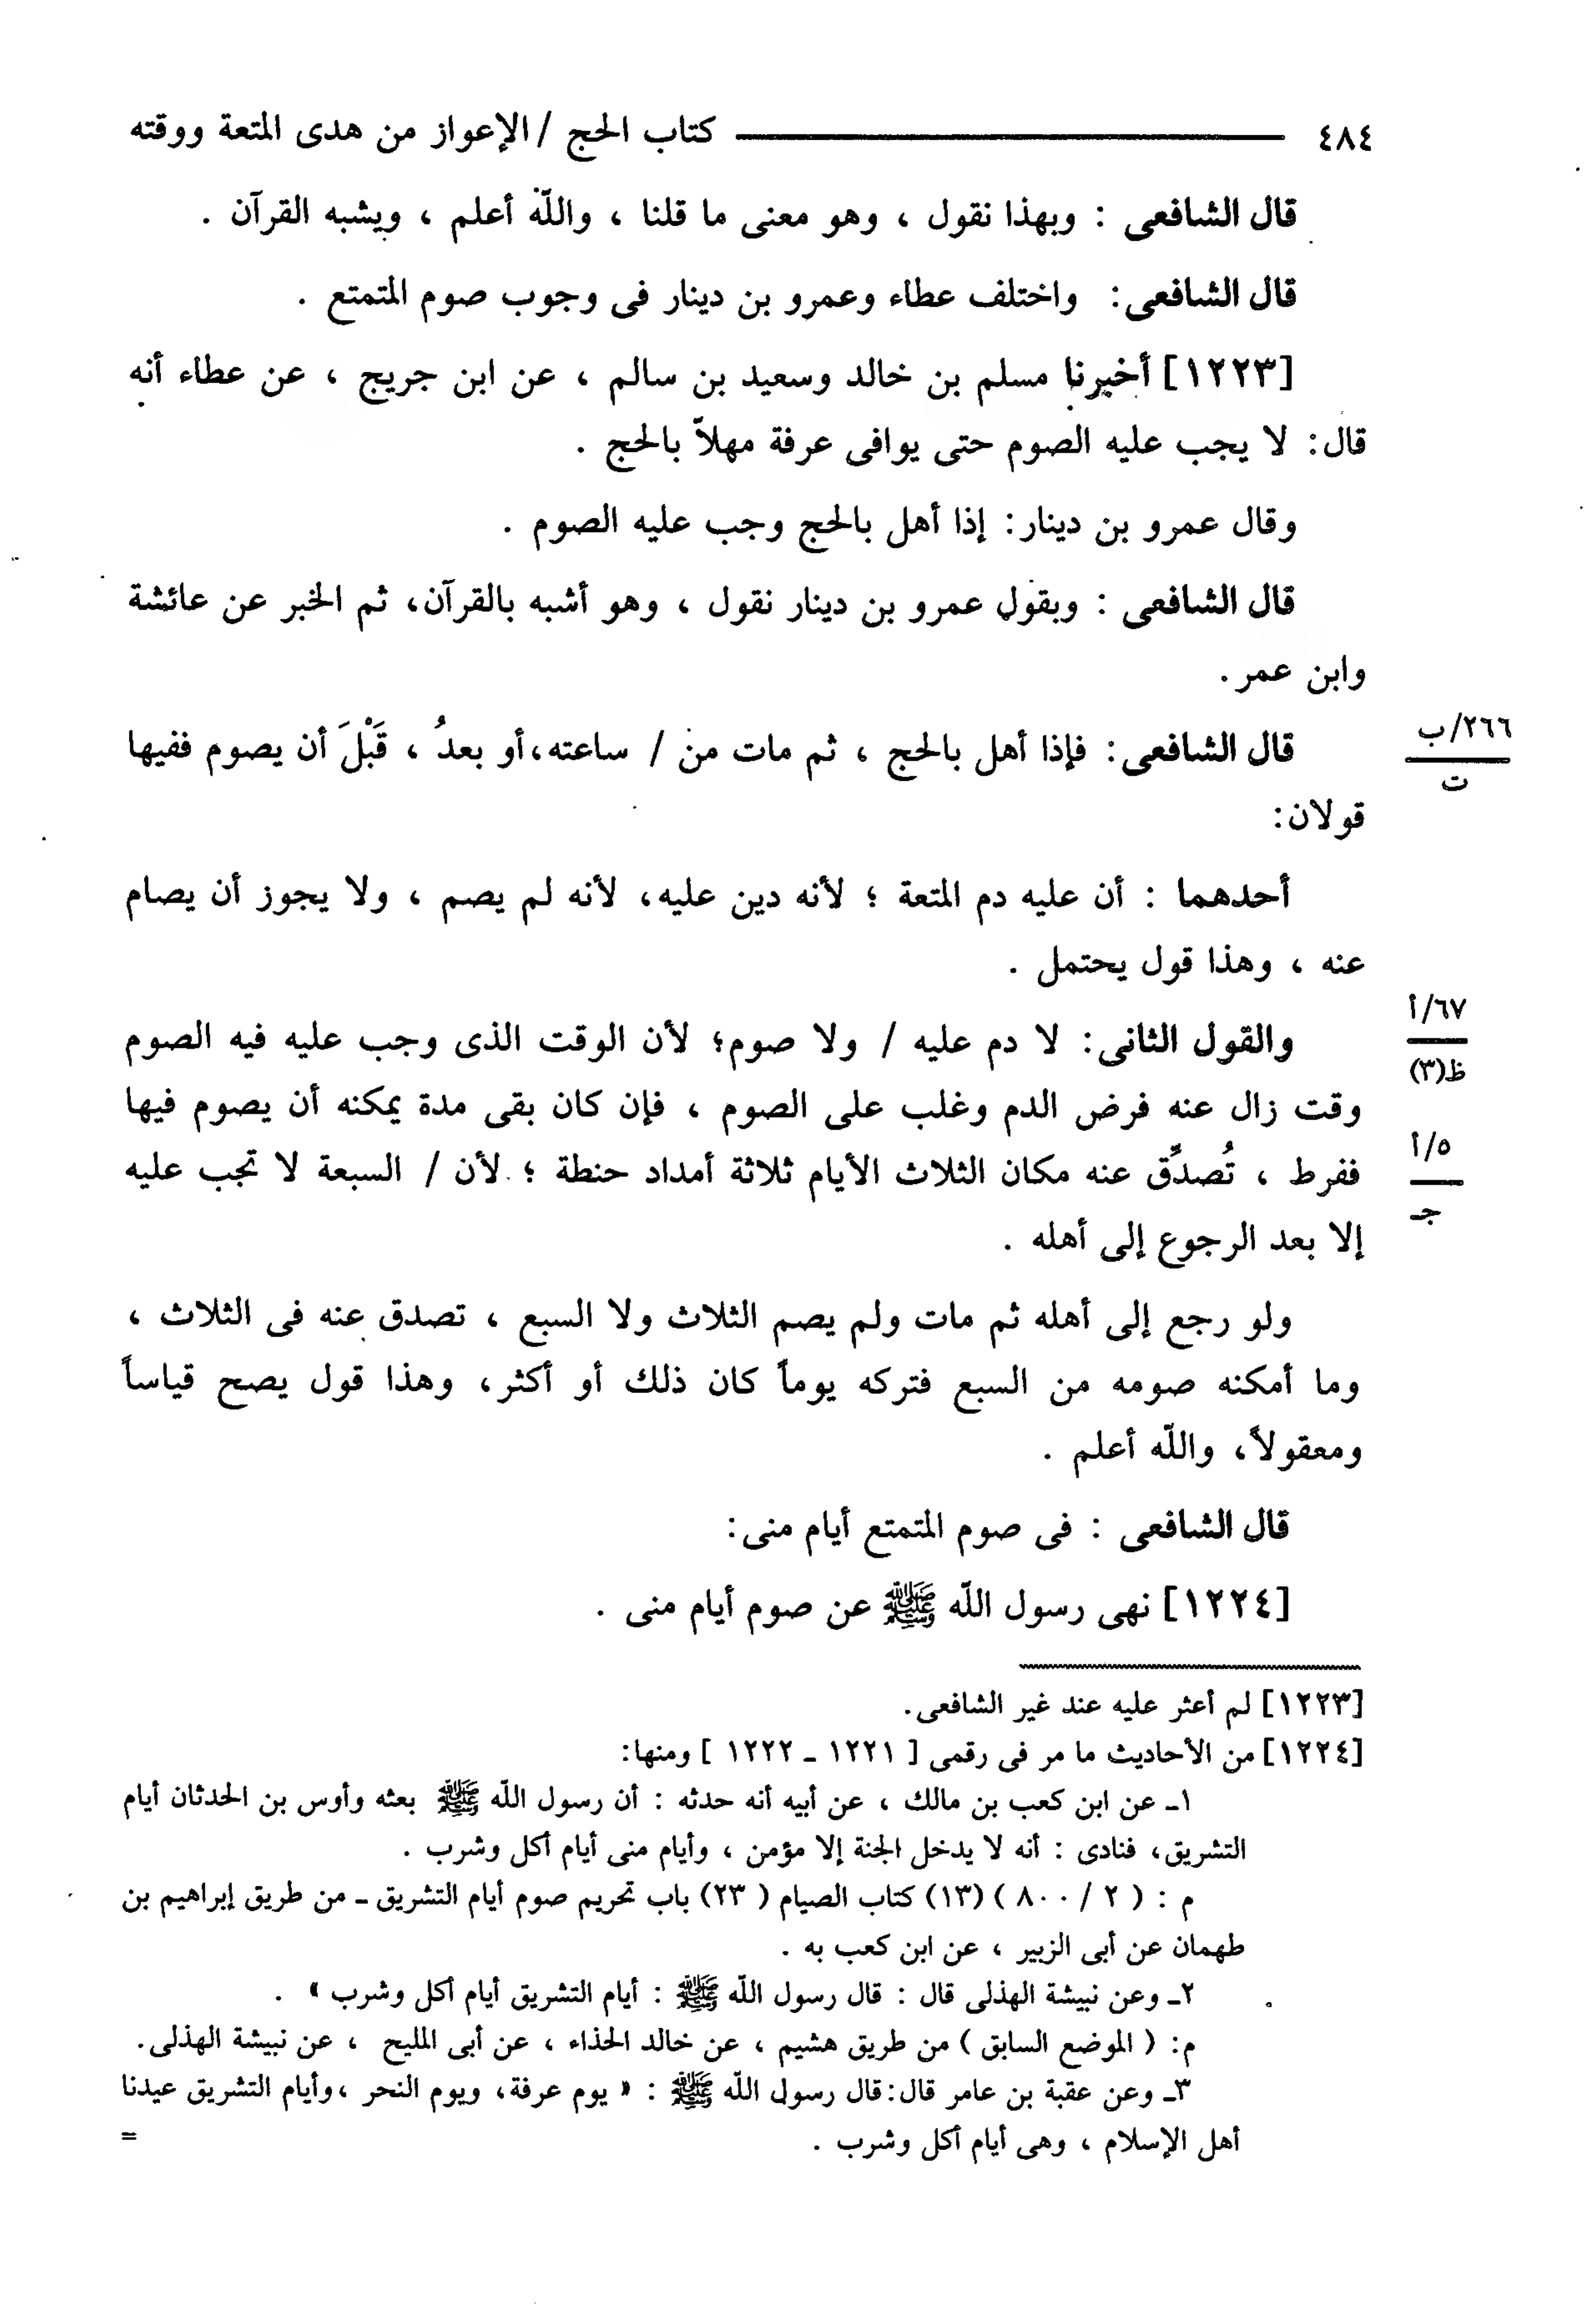 ٤٨٤ كتاب الحج / الإعواز من هدى المتعة ووقته
قال الشافعى : وبهذا نقول ، وهو معنى ما قلنا ، واللّه أعلم ، ويشبه القرآن .
قال الشافعى: واختلف عطاء وعمرو بن دينار فى وجوب صوم المتمتع .
[١٢٢٣] أخبرنا مسلم بن خالد وسعيد بن سالم ، عن ابن جريج ، عن عطاء أنه
قال: لا يجب عليه الصوم حتى يوافى عرفة مهلاّ بالحج .
وقال عمرو بن دينار: إذا أهل بالحج وجب عليه الصوم .
قال الشافعى : وبقول عمرو بن دينار نقول ، وهو أشبه بالقرآن، ثم الخبر عن عائشة
وابن عمر.
قال الشافعى: فإذا أهل بالحج ، ثم مات من / ساعته،أو بعدُ ، قَبْلَ أن يصوم ففيها
٢٦٦/ب
ت
قولان:
أحدهما : أن عليه دم المتعة ؛ لأنه دين عليه، لأنه لم يصم ، ولا يجوز أن يصام
عنه ، وهذا قول يحتمل .
والقول الثانى: لا دم عليه / ولا صوم؛ لأن الوقت الذى وجب عليه فيه الصوم
٦٧/أ
ظ(٣)
وقت زال عنه فرض الدم وغلب على الصوم ، فإن كان بقى مدة يمكنه أن يصوم فيها
ففرط ، تُصدِّق عنه مكان الثلاث الأيام ثلاثة أمداد حنطة ؛ لأن / السبعة لا تجب عليه
٥/أ
جـ
إلا بعد الرجوع إلى أهله .
ولو رجع إلى أهله ثم مات ولم يصم الثلاث ولا السبع ، تصدق عنه فى الثلاث ،
وما أمكنه صومه من السبع فتركه يوماً كان ذلك أو أكثر، وهذا قول يصح قياساً
ومعقولاً، واللّه أعلم .
قال الشافعى : فى صوم المتمتع أيام منى:
[١٢٢٤] نهى رسول اللّه ﷺ عن صوم أيام منى .
[١٢٢٣] لم أعثر عليه عند غير الشافعى.
[١٢٢٤] من الأحاديث ما مر فى رقمى [ ١٢٢١ ـ ١٢٢٢ ] ومنها:
١ـ عن ابن كعب بن مالك ، عن أبيه أنه حدثه : أن رسول اللّه ﷺ بعثه وأوس بن الحدثان أيام
التشريق، فنادى : أنه لا يدخل الجنة إلا مؤمن ، وأيام منى أيام أكل وشرب .
م : ( ٢ / ٨٠٠ ) (١٣) كتاب الصيام ( ٢٣) باب تحريم صوم أيام التشريق ـ من طريق إبراهيم بن
طهمان عن أبى الزبير ، عن ابن كعب به .
٢ـ وعن نبيشة الهذلى قال : قال رسول اللّه ﷺ : أيام التشريق أيام أكل وشرب » .
م: ( الموضع السابق ) من طريق هشيم ، عن خالد الحذاء ، عن أبى المليح ، عن نبيشة الهذلى.
٣ـ وعن عقبة بن عامر قال: قال رسول اللّه ﷺ : « يوم عرفة، ويوم النحر ،وأيام التشريق عيدنا
أهل الإسلام ، وهى أيام أكل وشرب . =